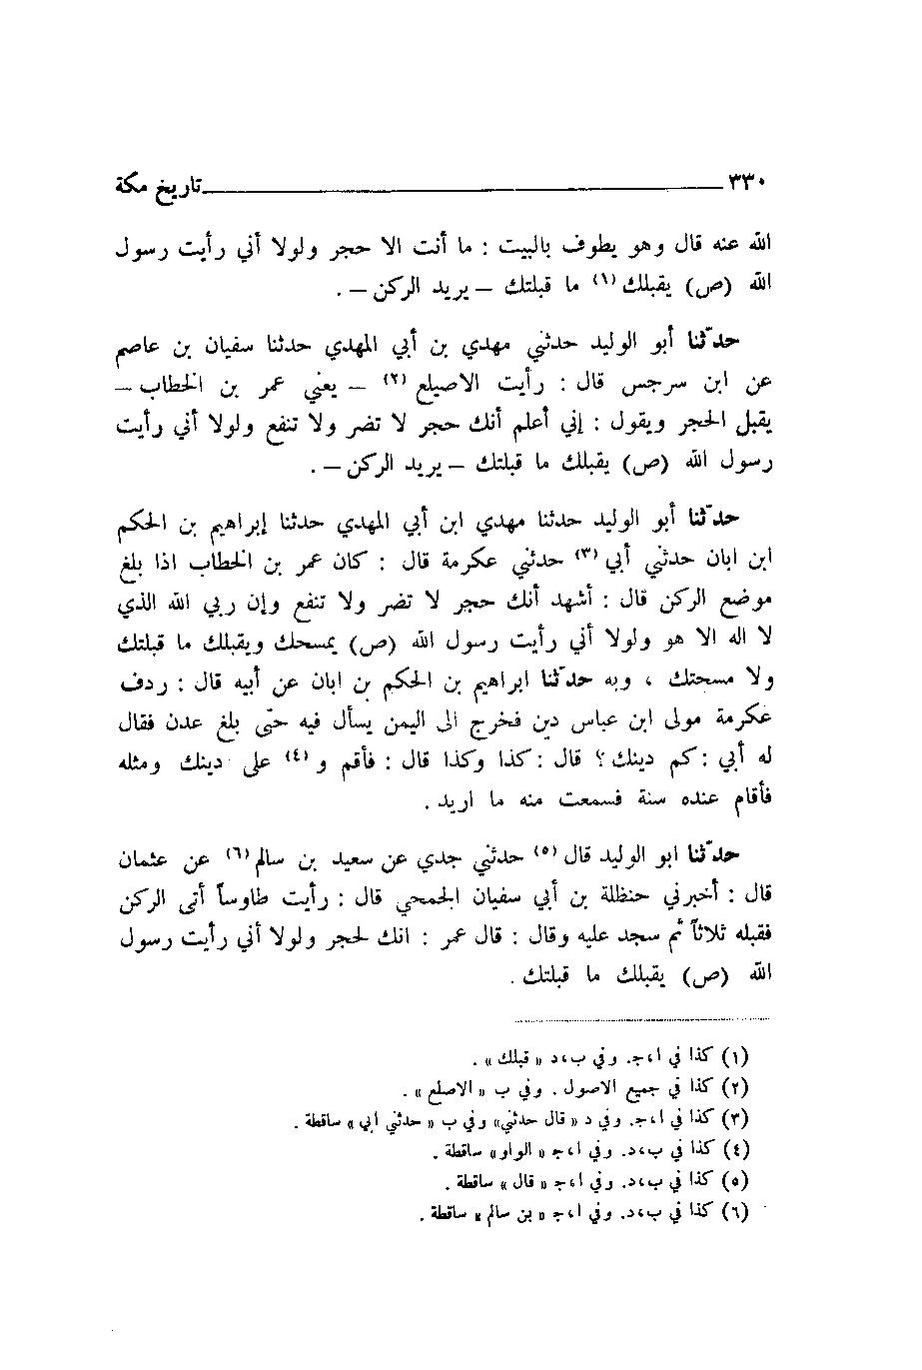 ٣٣٠ تاريخ مكة
الله عنه قال وهو يطوف بالبيت : ما أنت الا حجر ولولا أني رأيت رسول
الله (ص) يقبلك (١) ما قبلتك – يريد الركن – .
حدّثنا أبو الوليد حدثني مهدي بن أبي المهدي حدثنا سفيان بن عاصم
عن ابن سرجس قال : رأيت الاصيلع (٢) – يعني عمر بن الخطاب –
يقبل الحجر ويقول : إني أعلم أنك حجر لا تضر ولا تنفع ولولا أني رأيت
رسول الله (ص) يقبلك ما قبلتك – يريد الركن – .
حدّثنا أبو الوليد حدثنا مهدي ابن أبي المهدي حدثنا إبراهيم بن الحكم
ابن ابان حدثني أبي (٣) حدثني عكرمة قال : كان عمر بن الخطاب اذا بلغ
موضع الركن قال : أشهد أنك حجر لا تضر ولا تنفع وإن ربي الله الذي
لا اله الا هو ولولا أني رأيت رسول الله (ص) يمسحك ويقبلك ما قبلتك
ولا مسحتك ، وبه حدّثنا ابراهيم بن الحكم بن ابان عن أبيه قال : ردف
عكرمة مولى ابن عباس دين فخرج الى اليمن يسأل فيه حتى بلغ عدن فقال
له أبي : كم دينك ؟ قال : كذا وكذا قال : فأقم و (٤) على دينك ومثله
فأقام عنده سنة فسمعت منه ما اريد .
حدّثنا ابو الوليد قال (٥) حدثني جدي عن سعيد بن سالم (٦) عن عثمان
قال : أخبرني حنظلة بن أبي سفيان الجمحي قال : رأيت طاوساً أتى الركن
فقبله ثلاثاً ثم سجد عليه وقال : قال عمر : انك لحجر ولولا أني رأيت رسول
الله (ص) يقبلك ما قبلتك .
(١) كذا في ا،ج. وفي ب،د « قبلك » .
(٢) كذا في جميع الاصول . وفي ب « الاصلع » .
(٣) كذا في ا،ج. وفي د « قال حدثني» وفي ب « حدثني ابي » ساقطة .
(٤) كذا في ب،د. وفي ا،ج « الواو» ساقطة .
(٥) كذا في ب،د. وفي ا،ج « قال » ساقطة .
(٦) كذا في ب،د. وفي ا،ج « بن سالم » ساقطة .